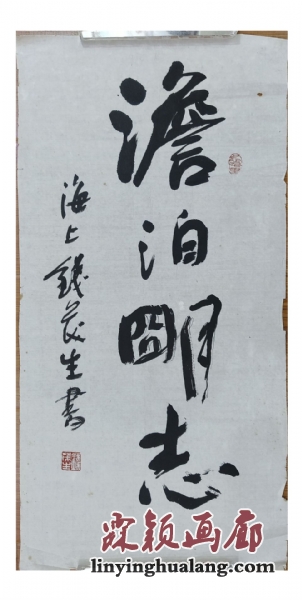 澹泊朙志
海上錢茂生書
霖颖画廊
linyinghualang.com